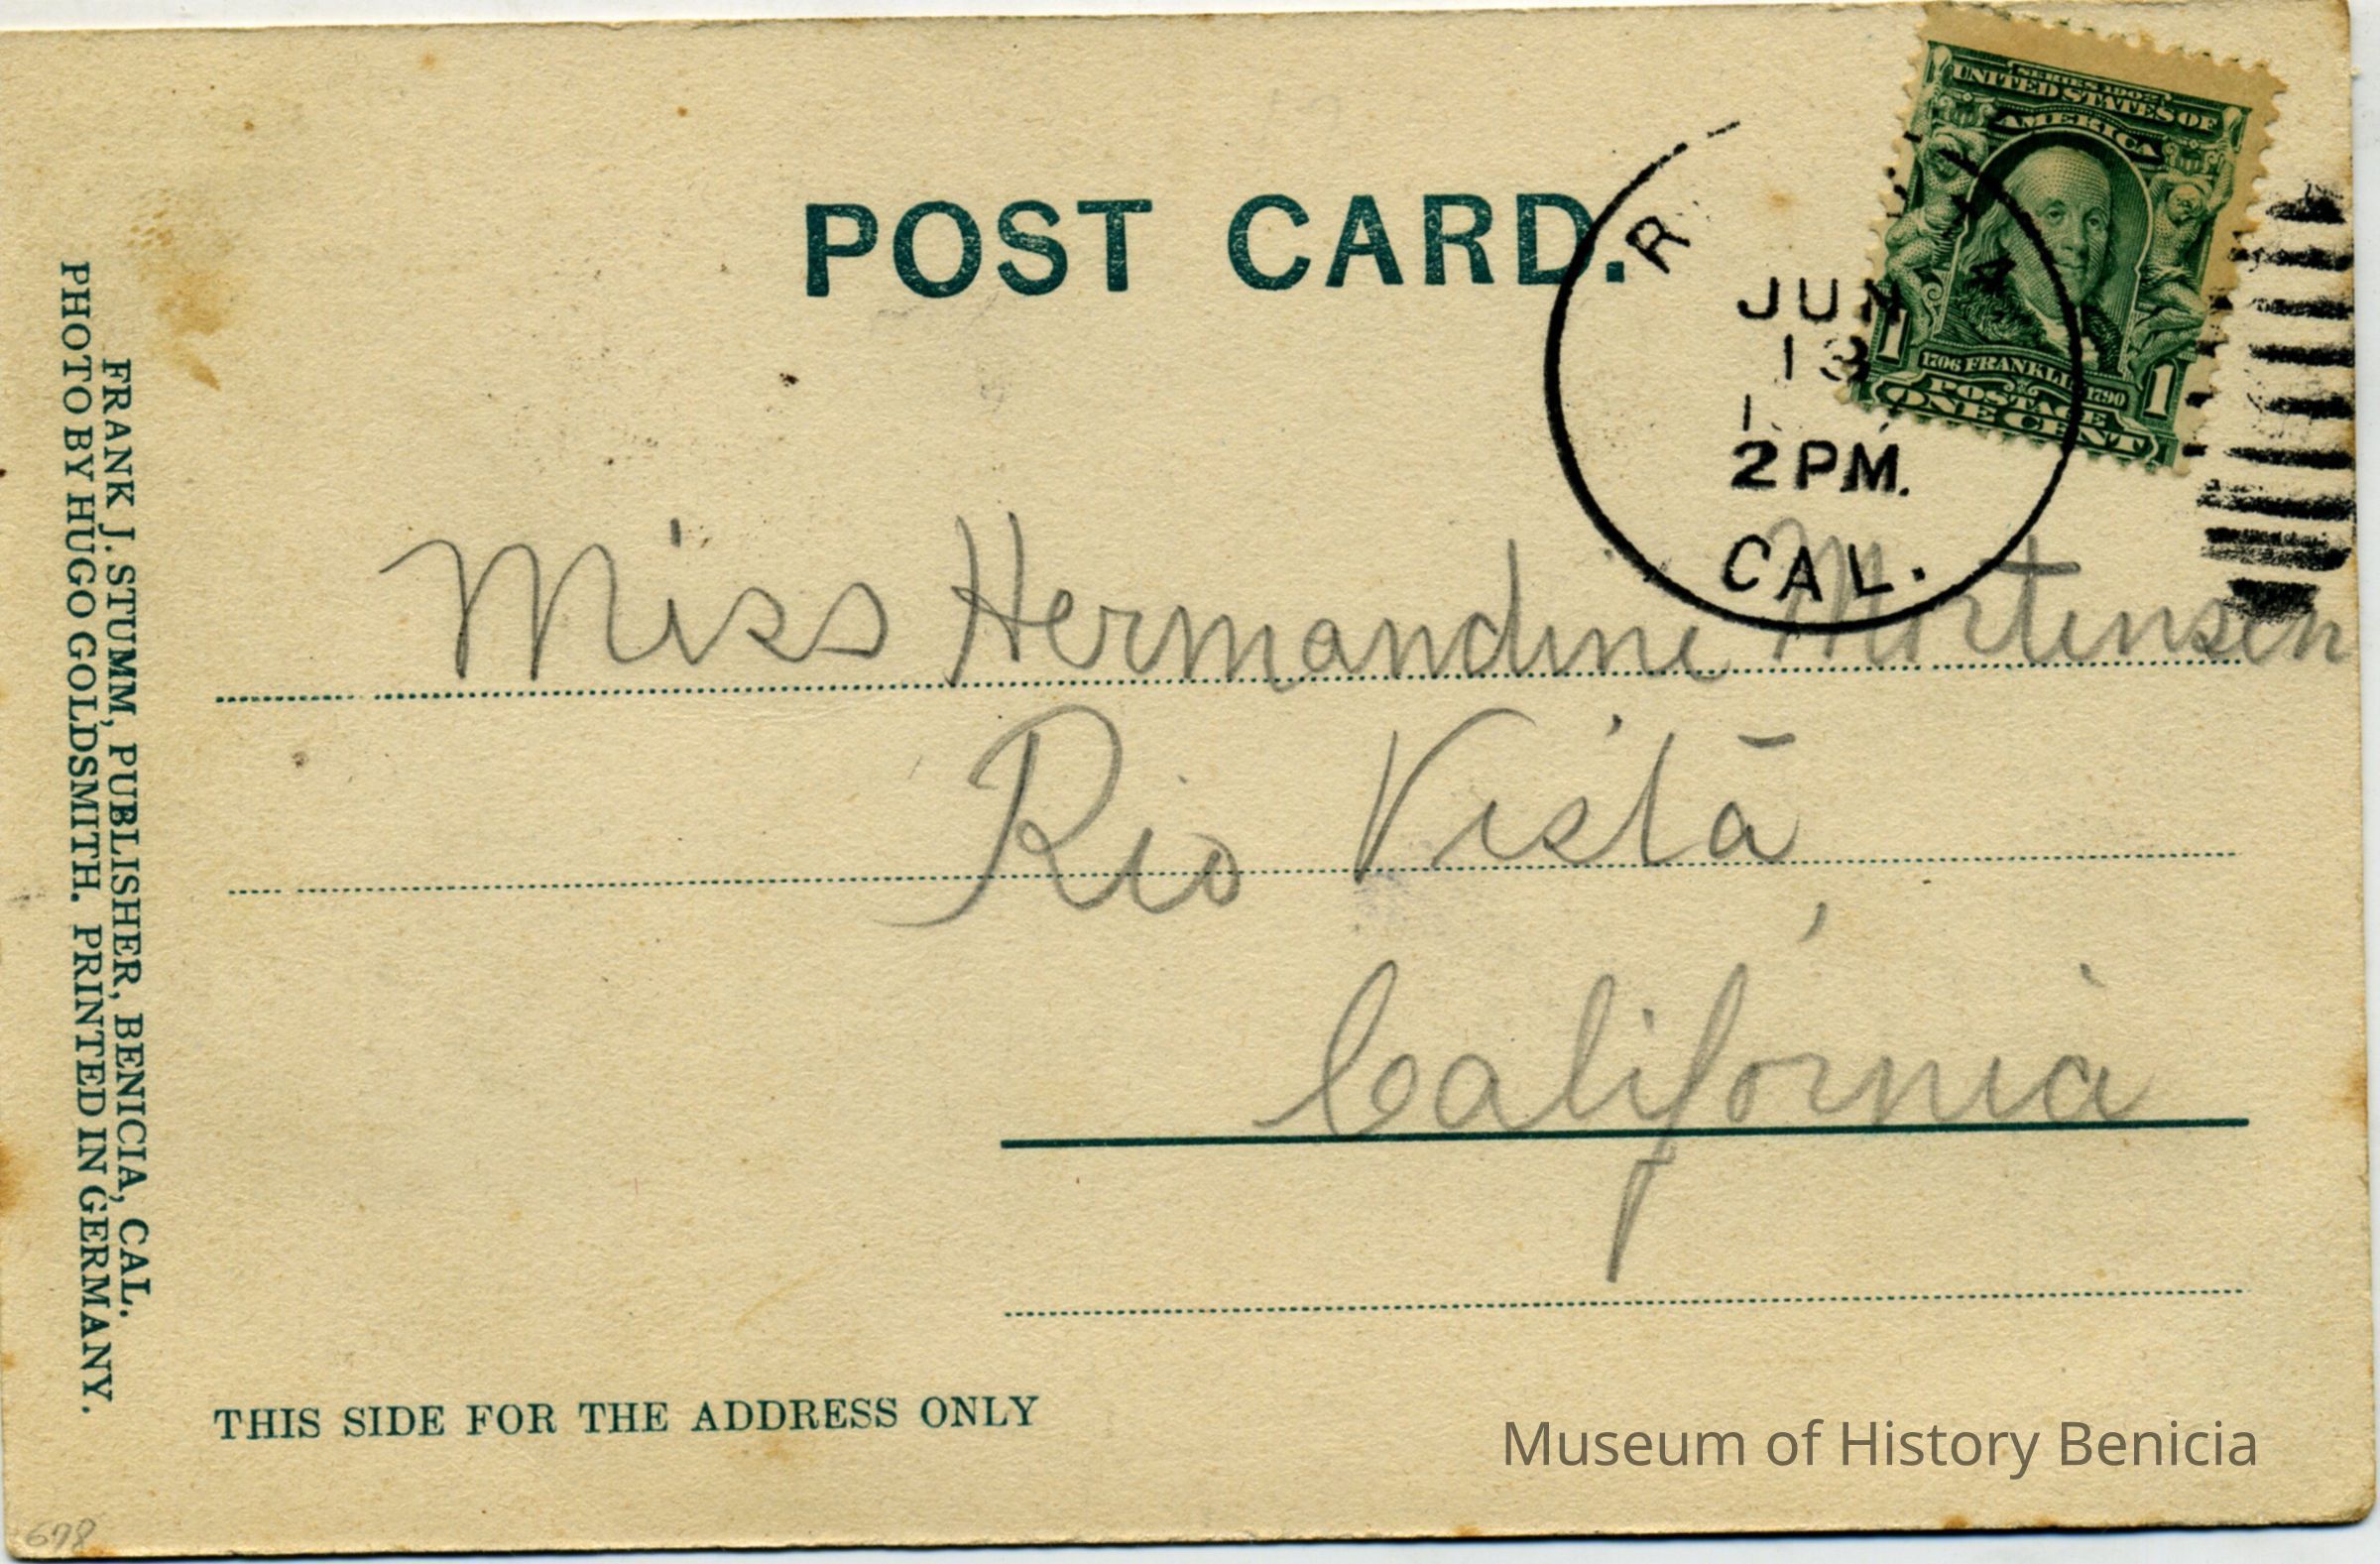 POST CARD.
SERIES 1902
UNITED STATES OF
AMERICA
1706 FRANKLIN 1790
1 POSTAGE 1
ONE CENT
R
JUN
13
2 PM.
CAL.
Miss Hermandine Mortensen
Rio Vista,
California
FRANK J. STUMM, PUBLISHER, BENICIA, CAL.
PHOTO BY HUGO GOLDSMITH. PRINTED IN GERMANY.
THIS SIDE FOR THE ADDRESS ONLY
Museum of History Benicia
678